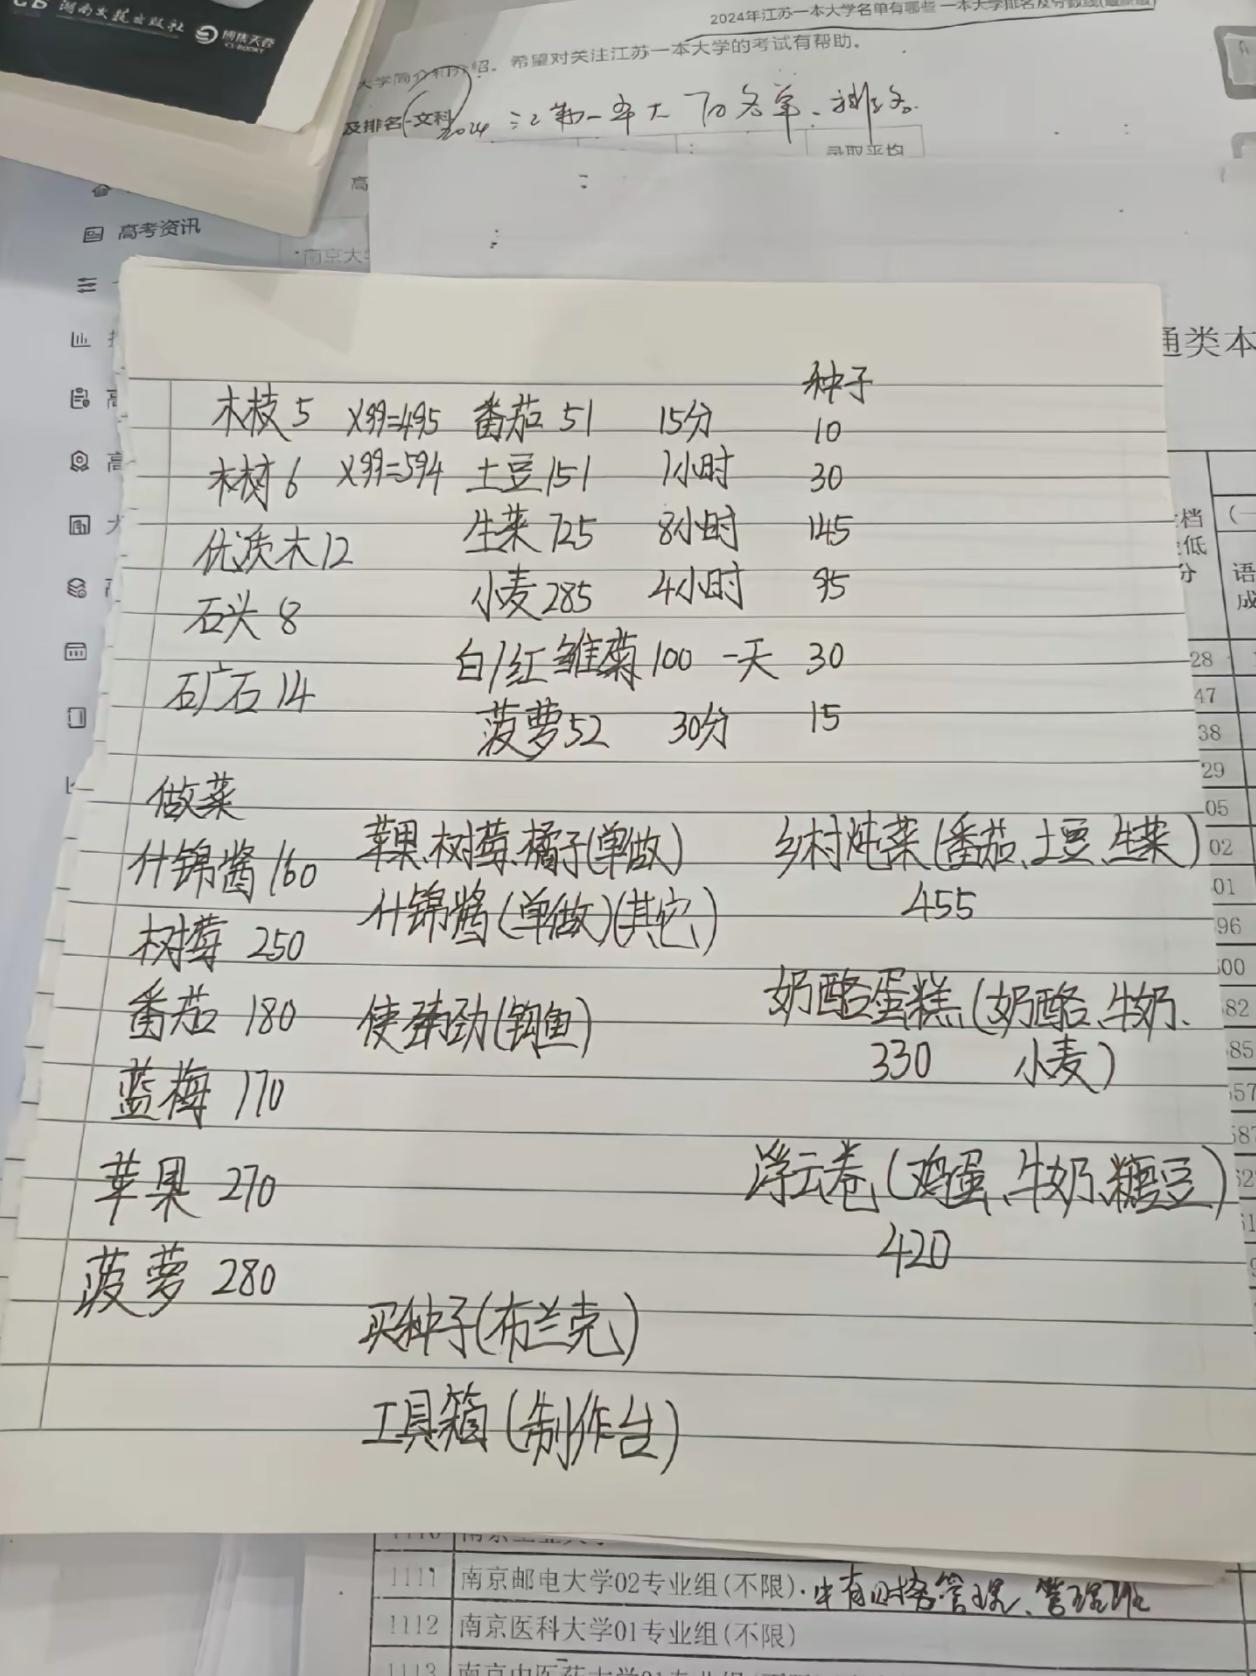 湖南文艺出版社 博集天卷
2024年江苏一本大学名单有哪些 一本大学排名及分数线(最新版)
大学简介和介绍。希望对关注江苏一本大学的考试有帮助。
及排名(文科)
2024
录取平均
高考资讯
南京大
通类本
种子
木枝5 X99=495 番茄 51 15分 10
木材6 X99=594 土豆151 1小时 30
优质木12 生菜725 8小时 145
石头 8 小麦285 4小时 95
白/红雏菊100 一天 30
矿石14
菠萝52 30分 15
做菜
什锦酱160 苹果、树莓、橘子(单做) 乡村炖菜(番茄、土豆、生菜)
什锦酱(单做)(其它) 455
树莓 250
番茄 180 使劲劲(钓鱼) 奶酪蛋糕(奶酪、牛奶、
330 小麦)
蓝莓 170
苹果 270 浮云卷(鸡蛋、牛奶、糖豆)
420
菠萝 280
买种子(布兰克)
工具箱(制作台)
档
低
分
语
成
28
47
38
29
05
02
01
96
00
82
85
57
1111 南京邮电大学02专业组(不限)
1112 南京医科大学01专业组(不限)
1113